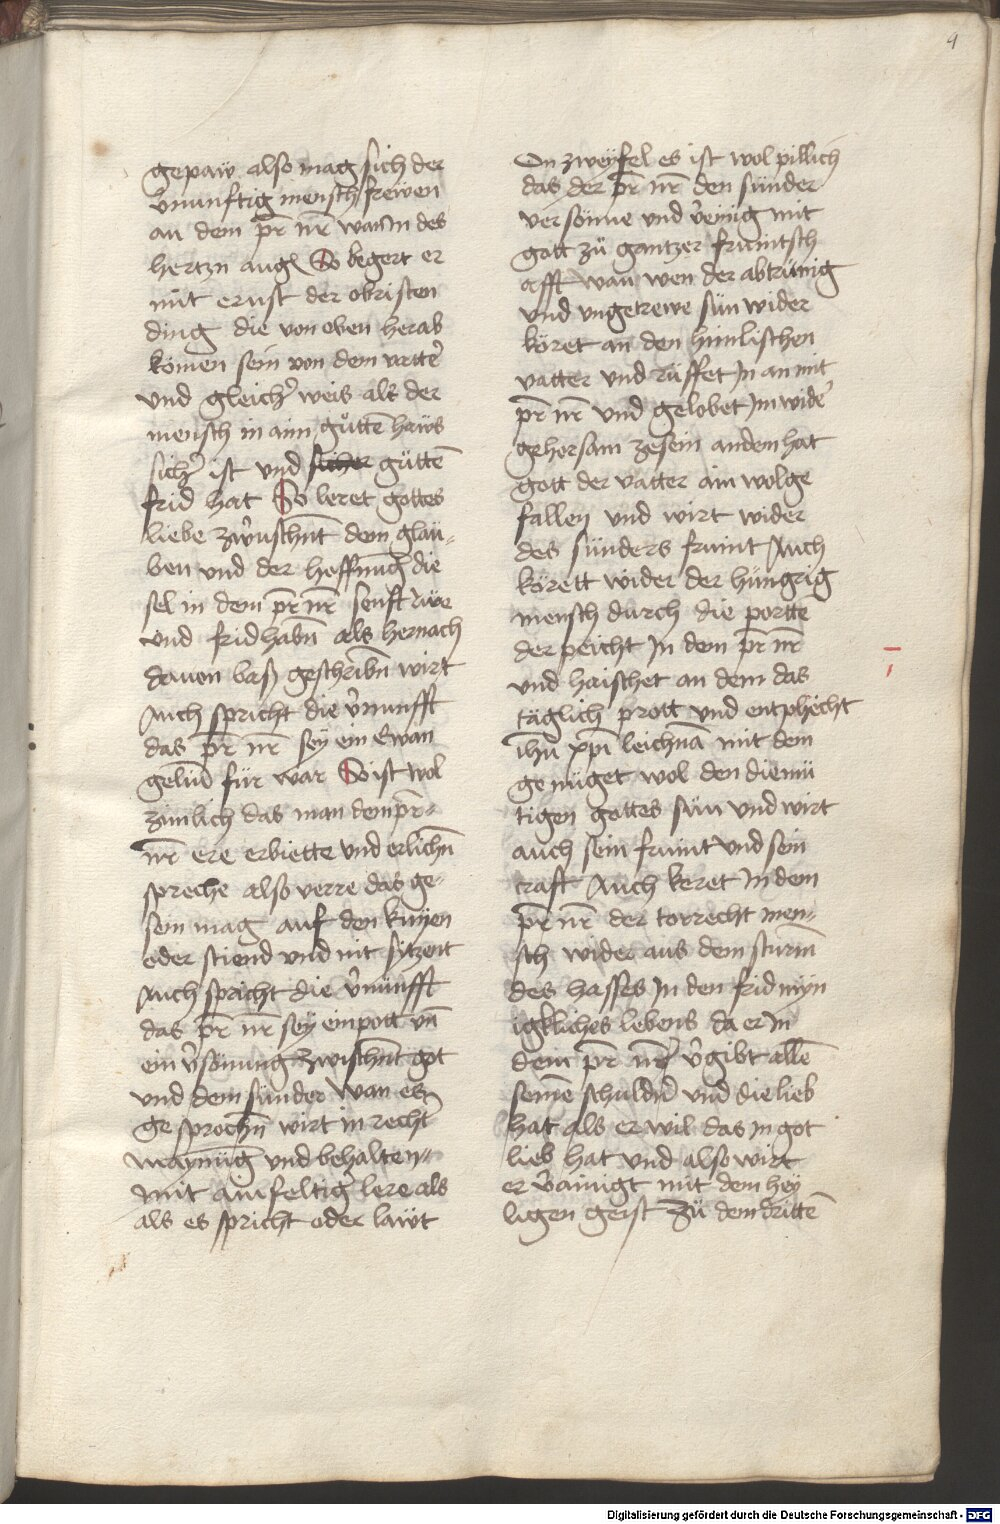 4
gepaw also mag sich der
v̉nunftig mensch frewen
an dem pr̄ nr̄ wan in des
hertzn augn So begert er
mit ernst der obristen
ding die von oben herab
kömen sein von dem vatter̉
und gleicher̉ weis als der
mensch in aim gůttē haws
sicher̉ ist und sicher gůttē
frid hat So leret gottes
liebe zwuschn̄t dem glau-
ben und der hoffnūg die
sel in dem pr̄ nr̄ senft rwe
und frid habn̄ als hernach
dauon bas geschribn̄ wirt
Auch spricht die v̉nunfft
das pr̄ nr̄ seÿ ein Ewan
geliū für war So ist wol
zimlich das man dem pr̄-
nr̄ ere erbiette und erlichn̄
spreche also verre das ge-
sein mag auf den knÿen
oder stiend und nit sÿtzent
Auch spricht die v̉nünfft
das pr̄ nr̄ seÿ ein pott vn̄
ein v̉sönung zwischn̄t got
und dem sünder wan es
gesprochn̄ wirt in rechtr̉
maÿnūg und behalten-
mit ainfeltig lere als
als es spricht oder lawt
On zweÿfel es ist wol pillich
das der pr̄ nr̄ den sünder
versönne und v̉einig mit
gott zü gantzer fruntsch
afft wan wen der abtrünig
und ungetrewe sün wider
köret an den himlischen
vatter und rüffet In an mit
pr̄ nr̄ und gelobet Im wider̉
gehorsam zesein an dem hat
gott der vatter ain wolge
fallen und wirt wider
des sünders fruint Auch
körett wider der hüngrig
mensch durch die portte
der peicht In dem pr̄ nr̄
und haischet an dem das
täglich prott und entphëcht
ihū xpī leichnā mit dem
genüget wol den diemü
tigen gottes sün und wirt
auch sein fruint und sein
craft Auch keret In dem
pr̄ nr̄ der torrecht men-
sch wider aus dem sturm̄
des hasses In den frid mÿn
igkliches lebens da er In
dem pr̄ nr̄ v̉gibt allē
seinē schuldn̉ und die lieb
hat als er wil das In got
lieb hat und also wirt
er v̉ainigt mit dem heÿ
ligen geist Zü dem drittē
Digitalisierung gefördert durch die Deutsche Forschungsgemeinschaft - DFG